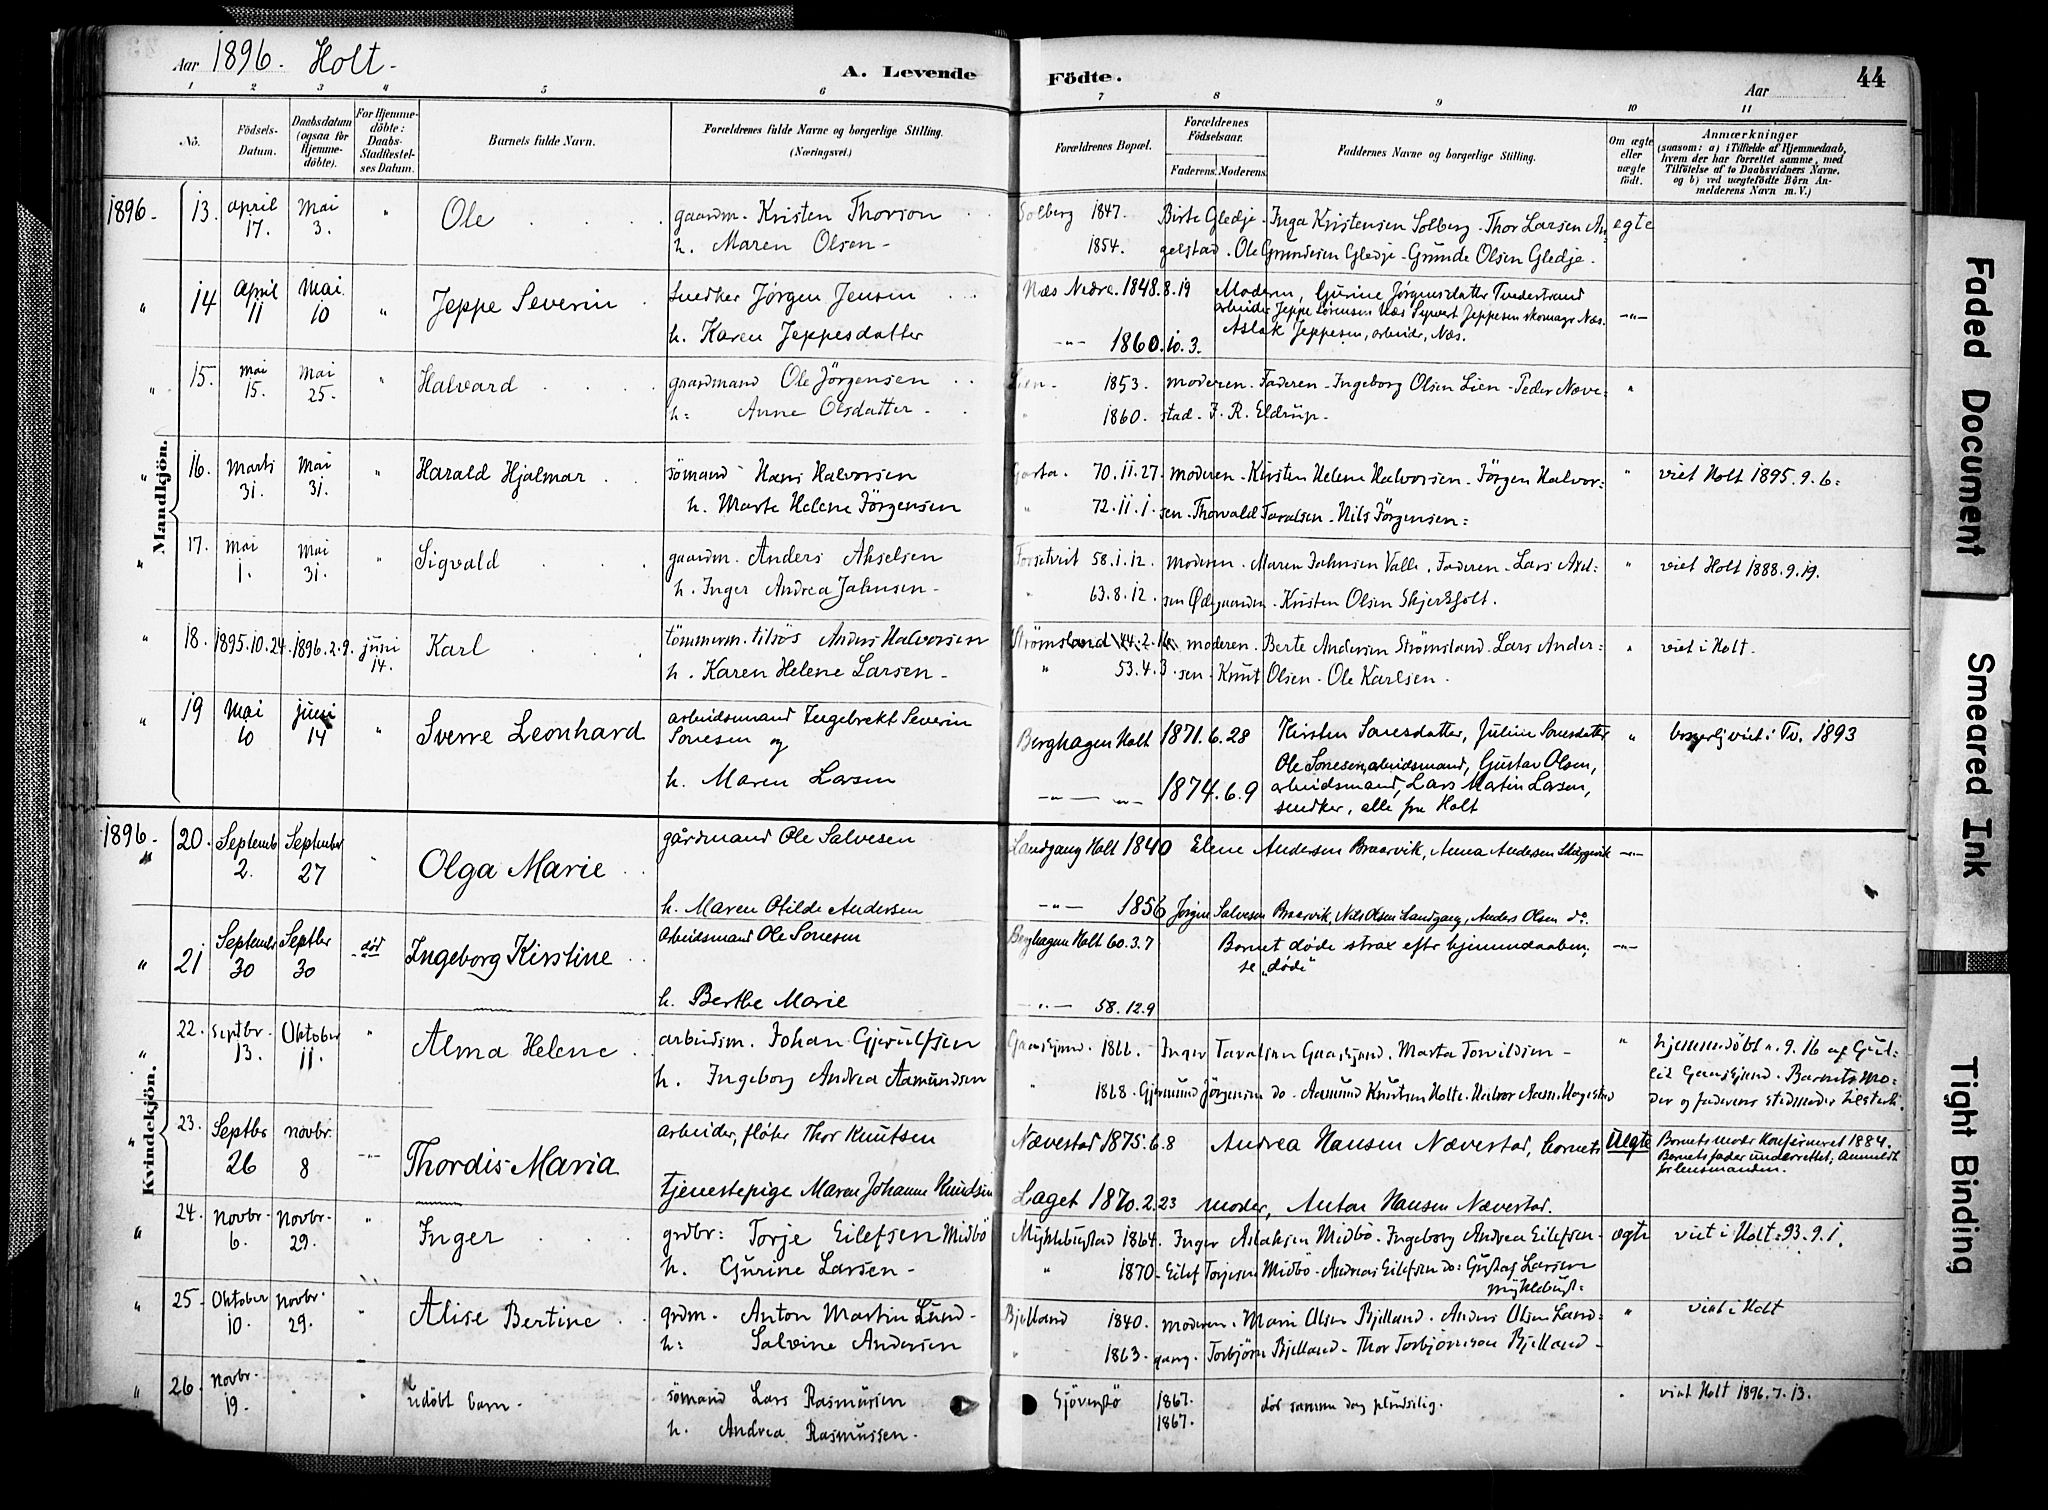 Aar 1896. Holt.
A. Levende Födte.
Aar
44
1 2 3 4 5 6 7 8 9 10 11
No.
Födsels-Datum.
Daabsdatum (ogsaa for Hjemme-döbte).
For Hjemme-döbte: Daabs-Stadfæstel-ses Datum.
Barnets fulde Navn.
Forældrenes fulde Navne og borgerlige Stilling. (Næringsvei.)
Forældrenes Bopæl.
Forældrenes Födselsaar.
Faderens. Moderens.
Faddernes Navne og borgerlige Stilling.
Om ægte eller uægte födt.
Anmærkninger
(saasom: a) i Tilfælde af Hjemmedaab, hvem der har forrettet samme, med Tilföielse af to Daabsvidners Navne, og b) ved uægtefödte Börn An-melderens Navn m. V.)
Mandkjön.
1896. 13. april 17. Mai 3. " Ole gaardm. Kristen Thorson Solberg 1847. Birte Gledje. Inga Kristensen Solberg. Thor Larsen An: egte
h. Maren Olsen " 1854. gelstad. Ole Grundesen Gledje. Grunde Olsen Gledje.
" 14 april 11 Mai 10 " Jeppe Severin Snedker Jørgen Jensen Næs Nedre. 1848.8.19 Moderen, Gurine Jørgensdatter Tvedestrand -"-
arbeider Jeppe Sørensen Næs Syvert Jeppesen skomager Næs.
h. Karen Jeppesdatter -"- 1860.10.3. Aslak Jeppesen, arbeider, Næs.
" 15. mai 15. mai 25. " Halvard gaardmand Ole Jörgensen Lien 1853. moderen. Faderen. Ingeborg Olsen Lien. Peder Næve: "
h: Anne Olsdatter. " 1860. stad. F. R. Eldrup.
" 16. Marts 31. Mai 31. " Harald Hjalmar sömand Hans Halvorsen Garta. 70.11.27. moderen. Kirsten Helene Halvorsen. Jörgen Halvor: " viet Holt 1895.9.6.
h. Marte Helene Jörgensen " 72.11.1. sen. Thorvald Taralsen. Nils Jörgensen.
" 17. mai 1. mai 31. " Sigvald gaardm. Anders Akselsen Fossetveit 58.1.12. moderen. Maren Jahnsen Valle. Faderen. Lars Axel: " viet Holt 1888.9.19.
h. Inger Andrea Jahnsen. " 63.8.12. sen Ødegaarden. Kristen Olsen Skjerkholt.
" 18. 1895.10.24. 1896.2.9. juni 14. Karl tömmerm. tilsös Anders Halvorsen Strømsland 44.2.16 moderen. Berte Andersen Strømsland. Lars Ander: " viet i Holt.
h. Karen Helene Larsen. " 53.4.3. sen. Knut Olsen. Ole Karlsen.
" 19 Mai 10 juni 14 " Sverre Leonhard arbeidsmand Ingebrekt Severin Sonesen og Berghagen Holt 1871.6.28 Kirsten Sonesdatter, Juline Sonesdatter " borgerlj viet i Tv. 1893
Ole Sonesen, arbeidsmand, Gustav Olsen,
h. Maren Larsen -"- -"- 1874.6.9 arbeidsmand, Lars Martin Larsen,
snedker, alle fra Holt
Kvindekjön.
1896. 20. Septemb 2. September 27 " Olga Marie gårdmand Ole Salvesen Landgang Holt 1840 Elene Andersen Braarvik, Anna Andersen -"-
h. Maren Otilde Andersen -"- 1856 Jörgine Salvesen Braarvik, Nils Olsen Landgang, Anders Olsen do.
" 21 Septembr 30 Septbr 30 død Ingeborg Kirstine Arbeidsmand Ole Sonesen Berghagen Holt 60.3.7 Barnet døde strax efter hjemmedaaben; -"-
se "døde"
h. Berthe Marie -"- 58.12.9
" 22. septbr. 13. Oktober 11. " Alma Helene arbeidsm. Johan Gjerulfsen Gaasejund. 1866. Inger Taralsen Gaasejund. Marta Torvildsen " hjemmedöbt n. 9. 16 af Gul:
h. Ingeborg Andrea Aamundsen " 1868. Gjermund Jörgensen do. Aamund Knutsen Holte. Halvor Aam. Hagestad
Barnets Mo:
der og faderens stedmoder tilstede.
" 23. Septbr 26 novbr. 8 -"- Thordis Maria arbeider, fløter Thor Knutsen Nævestad 1875.6.8 Andrea Hansen Nævestad, barnets Uegte Barnets moder konfirmeret 1884.
Barnets fader underrettet; Anmeldt
for lensmanden.
tjenestepige Maren Johanne Knudsen Laget 1870.2.23 moder, Anton Hansen Nævestad.
" 24. Novbr. 6. Novbr. 29. " Inger grdbr: Torje Eilefsen Midbö Myklebustad 1864. Inger Aslaksen Midbö. Ingeborg Andrea Eilefsen. ægte viet i Holt: 93.9.1.
h. Gurine Larsen. " 1870. Eilef Torjesen Midbö. Andreas Eilefsen do: Gustaf Larsen
Myklebust:
" 25. Oktober 10. novbr. 29. " Alise Bertine grdm. Anton Martin Lund. Bjelland 1840. moderen. Marie Olsen Bjelland. Anders Olsen Land: " viet i Holt
h: Salvine Andersen " 1863. gang. Torbjörn Bjelland. Thor Torbjörnsen Bjelland.
" 26. novbr. 19. " " udöbt barn. sömand Lars Rasmusen 1867. död samme dag pludselig. " viet Holt 1896.7.13.
h. Andrea Rasmussen. 1867.
Faded Document
Smeared Ink
Tight Binding